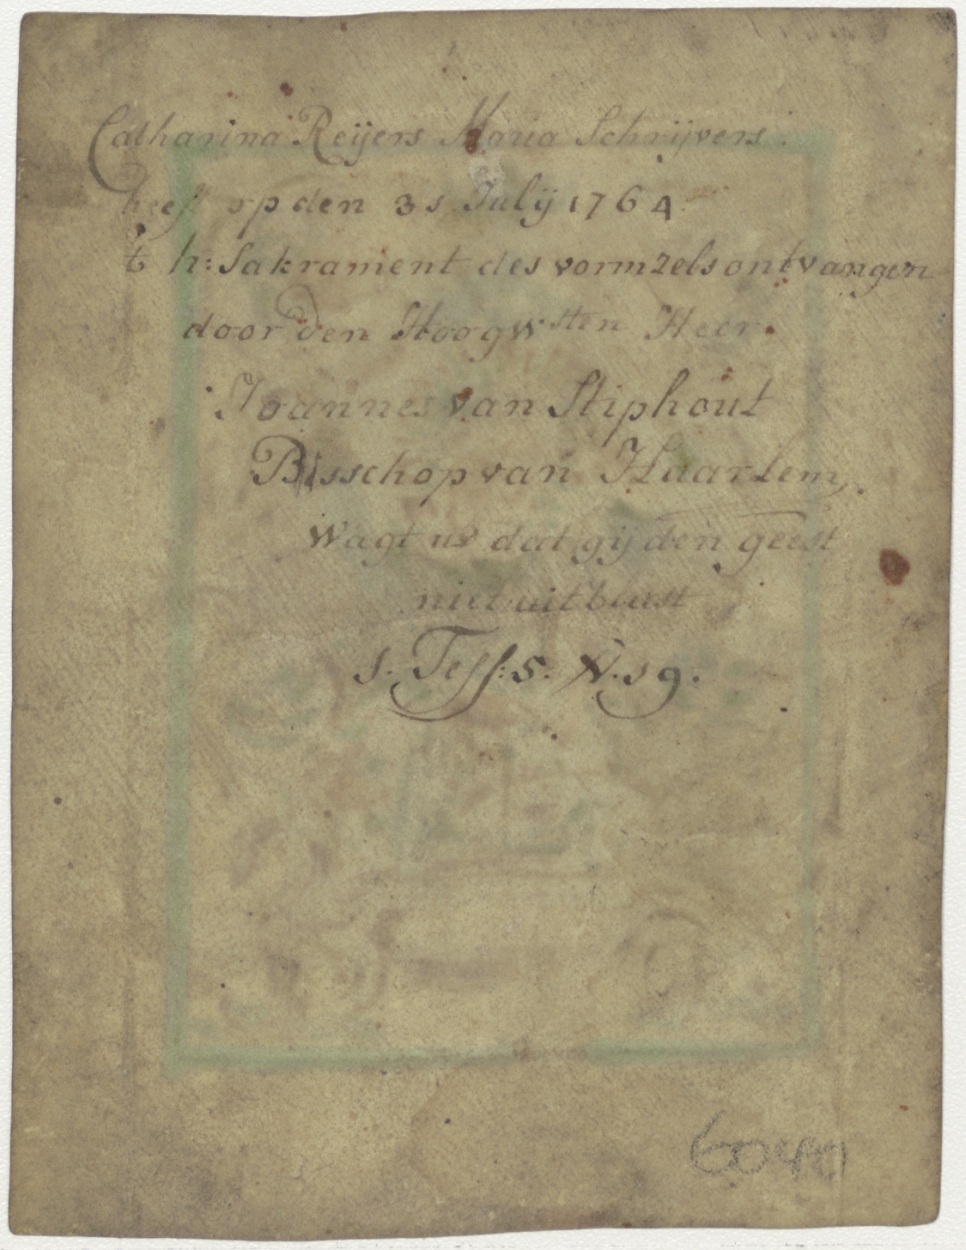 Catharina Reijers Maria Schrijvers.
heeft op den 31 Julij 1764
t h: Sakrament des vormzels ontvangen
door den Hoogwsten Heer.
Joannes van Stiphout
Bisschop van Haarlem,
Wagt us dat gij den geest
niet uitblust
1. Tess: 5. V. 19.